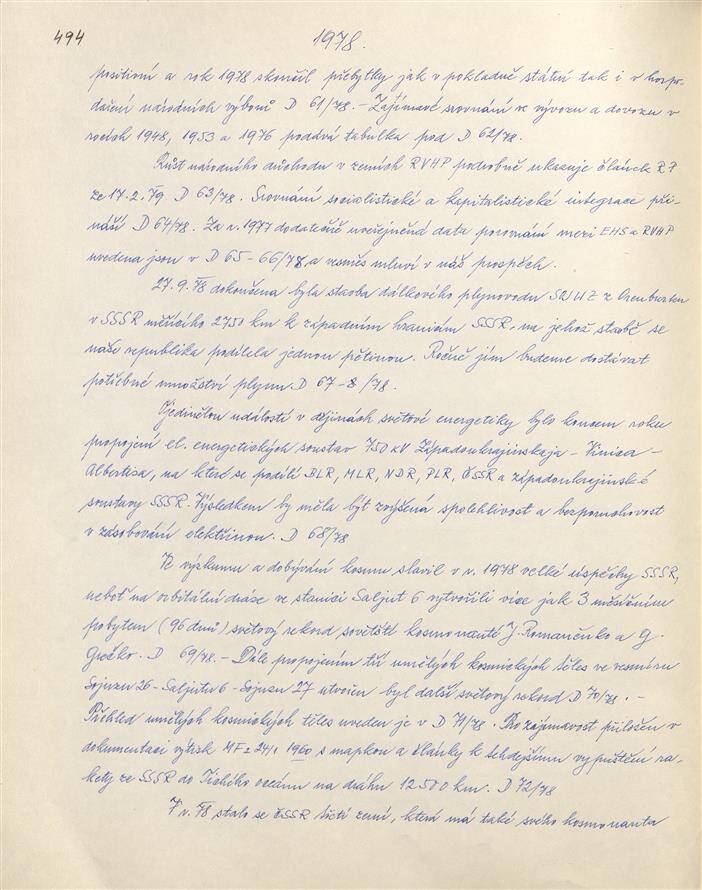 494
1978.
positivní a rok 1978 skončil přebytky jak v pokladně státní tak i v hospo-
daření národních výborů D 61/78. - Zajímavé srovnání ve vývozu a dovozu v
rocích 1948, 1953 a 1976 podává tabulka pod D 62/78.
Růst národního důchodu v zemích RVHP podrobně ukazuje článek RP
ze 17.2.79 D 63/78. Srovnání socialistické a kapitalistické integrace při-
náší D 64/78. Za r. 1977 dodatečně uveřejněná data porovnání mezi EHS a RVHP
uvedena jsou v D 65-66/78 a vesměs mluví v náš prospěch.
27.9.78 dokončena byla stavba dálkového plynovodu SOJUZ z Orenburku
v SSSR měřícího 2750 km k západním hranicím SSSR, na jehož stavbě se
naše republika podílela jednou pětinou. Ročně jím budeme dostávat
potřebné množství plynu D 67-8/78.
Ojedinělou událostí v dějinách světové energetiky bylo koncem roku
propojení el. energetických soustav 750 kV Západoukrajinskaja - Vinica -
Albertisa, na které se podílí BLR, MLR, NDR, PLR, ČSSR a západoukrajinské
soustavy SSSR. Výsledkem by měla být zvýšená spolehlivost a bezporuchovost
v zásobování elektřinou. D 68/78
Ve výzkumu a dobývání kosmu slavil v r. 1978 velké úspěchy SSSR,
neboť na orbitální dráze ve stanici Saljut 6 vytvořili více jak 3 měsíčním
pobytem (96 dnů) světový rekord sovětští kosmonauté J. Romaněnko a G.
Grečko. D 69/78. - Dále propojením tří umělých kosmických těles ve vesmíru
Sojuzu 26 - Saljutu 6 - Sojuzu 27 utvořen byl další světový rekord D 70/78. -
Přehled umělých kosmických těles uveden je v D 71/78. Pro zajímavost přiložen v
dokumentaci výtisk MF z 24/1 1960 s mapkou a články k tehdejšímu vypuštění ra-
kety ze SSSR do Tichého oceánu na dráhu 12500 km. D 72/78
V r. 78 stala se ČSSR třetí zemí, která má také svého kosmonauta